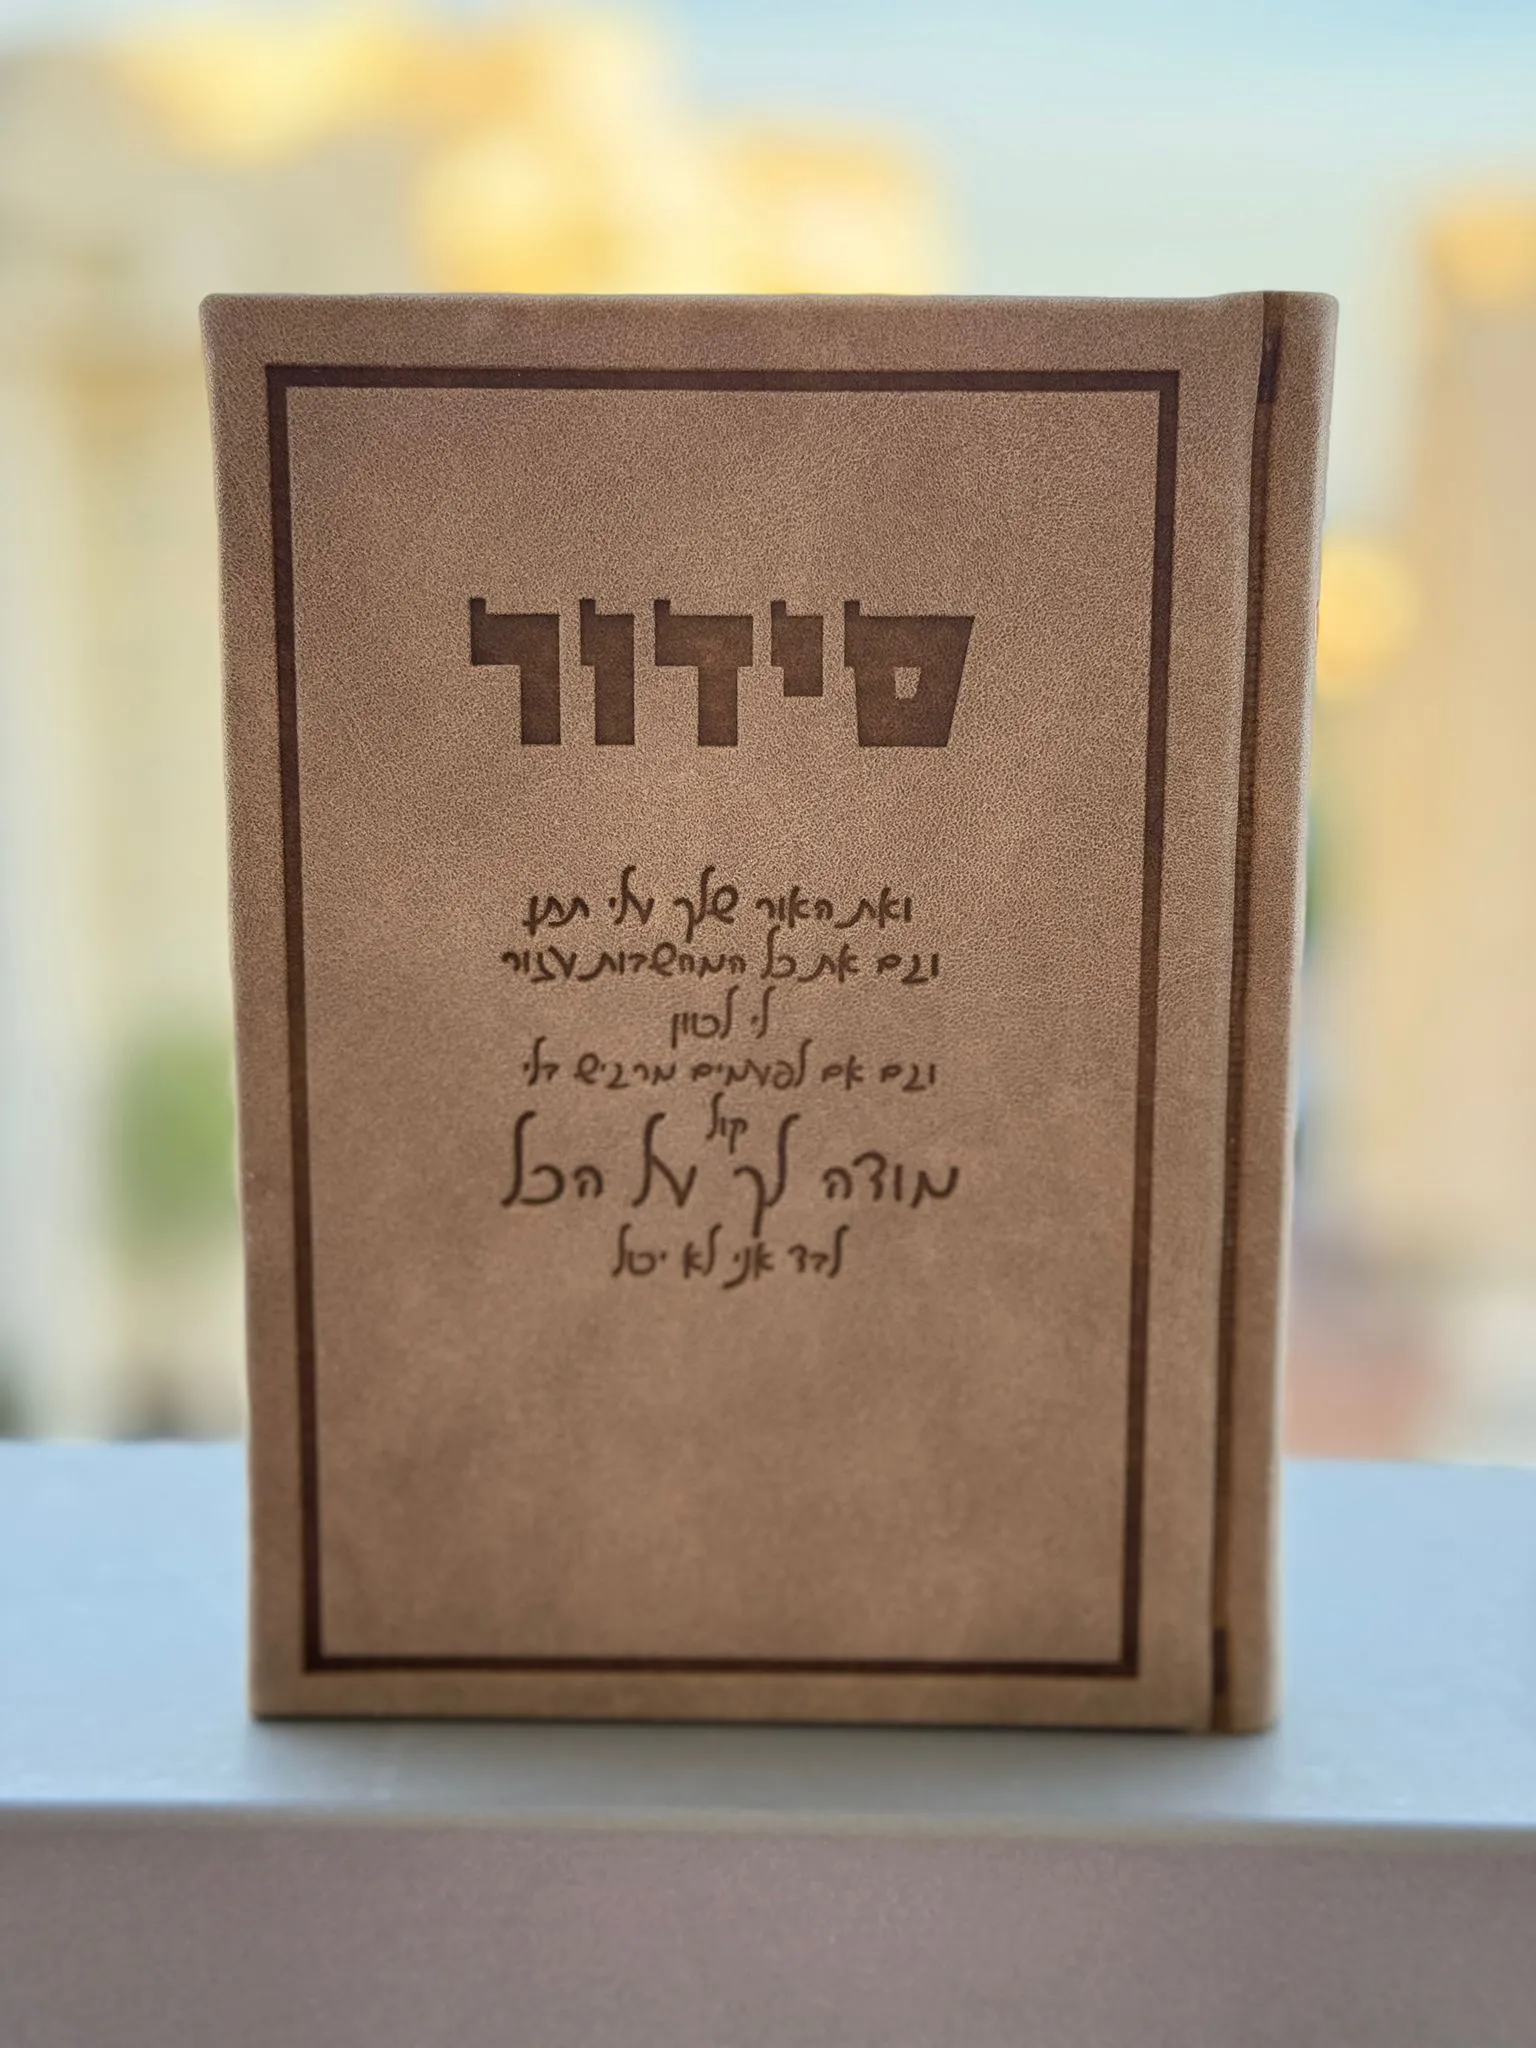 סידור
ואת האור שלך עלי תתן
וגם את כל המחשבות עזור
לי לכוון
וגם אם לפעמים מרגיש בלי
קול
מודה לך על הכל
לבד אני לא יכול